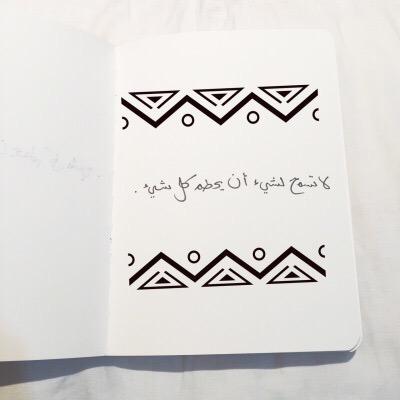 لا تسمح لشيء أن يحطم كل شيء .